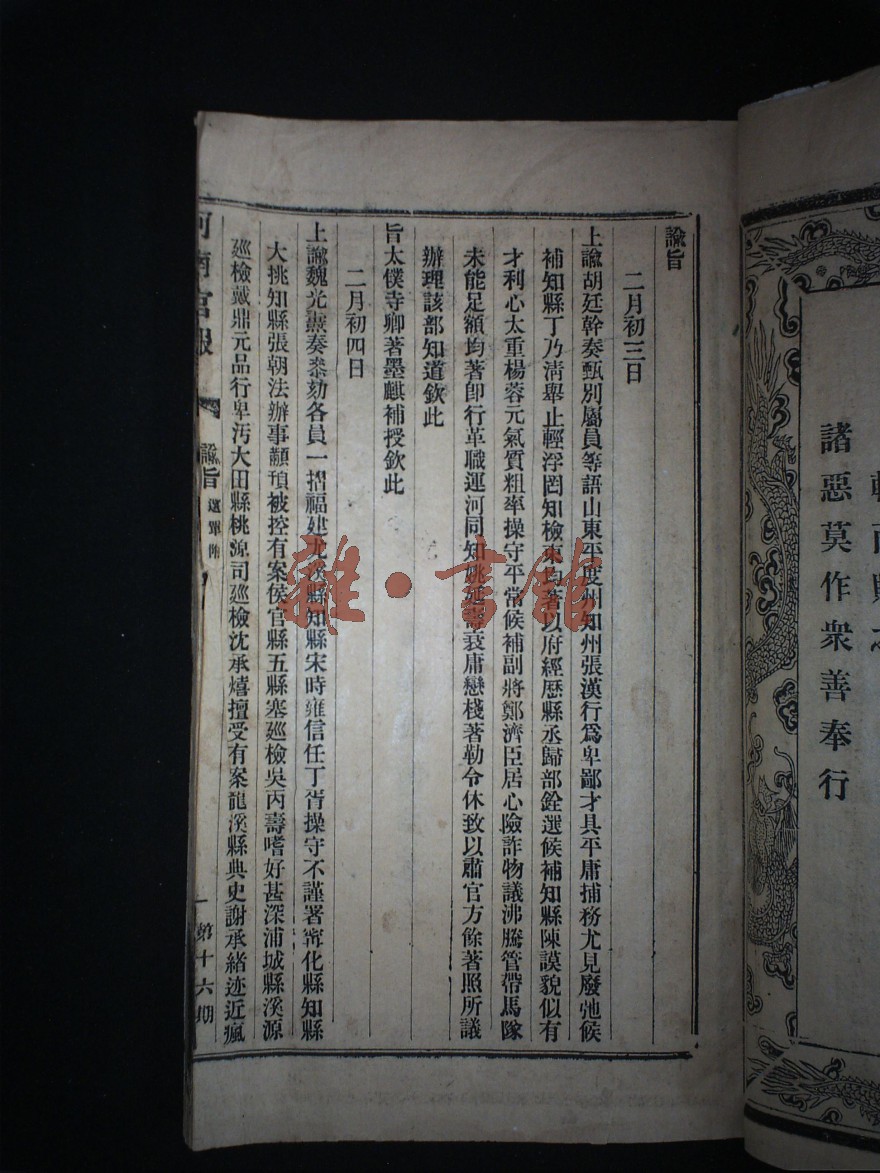 諸惡莫作衆善奉行
諭旨
二月初三日
上諭胡廷幹奏甄別屬員等語山東平度州知州張漢行爲卑鄙才具平庸捕務尤見廢弛候
補知縣丁乃淸舉止輕浮罔知檢束均著以府經歷縣丞歸部銓選候補知縣陳謨貌似有
才利心太重楊蓉元氣質粗率操守平常候補副將鄭濟臣居心險詐物議沸騰管帶馬隊
未能足額均著卽行革職運河同知姚延壽衰庸戀棧著勒令休致以肅官方餘著照所議
辦理該部知道欽此
旨太僕寺卿著墨麒補授欽此
二月初四日
上諭魏光燾奏叅劾各員一摺福建尤溪縣知縣宋時雍信任丁胥操守不謹署寗化縣知縣
大挑知縣張朝法辦事顢頇被控有案侯官縣五縣寨廵檢吳丙壽嗜好甚深浦城縣溪源
廵檢戴鼎元品行卑汚大田縣桃源司廵檢沈承熺擅受有案龍溪縣典史謝承緒迹近瘋
河南官報 諭旨 選單附 一 第十六期
雜·書館